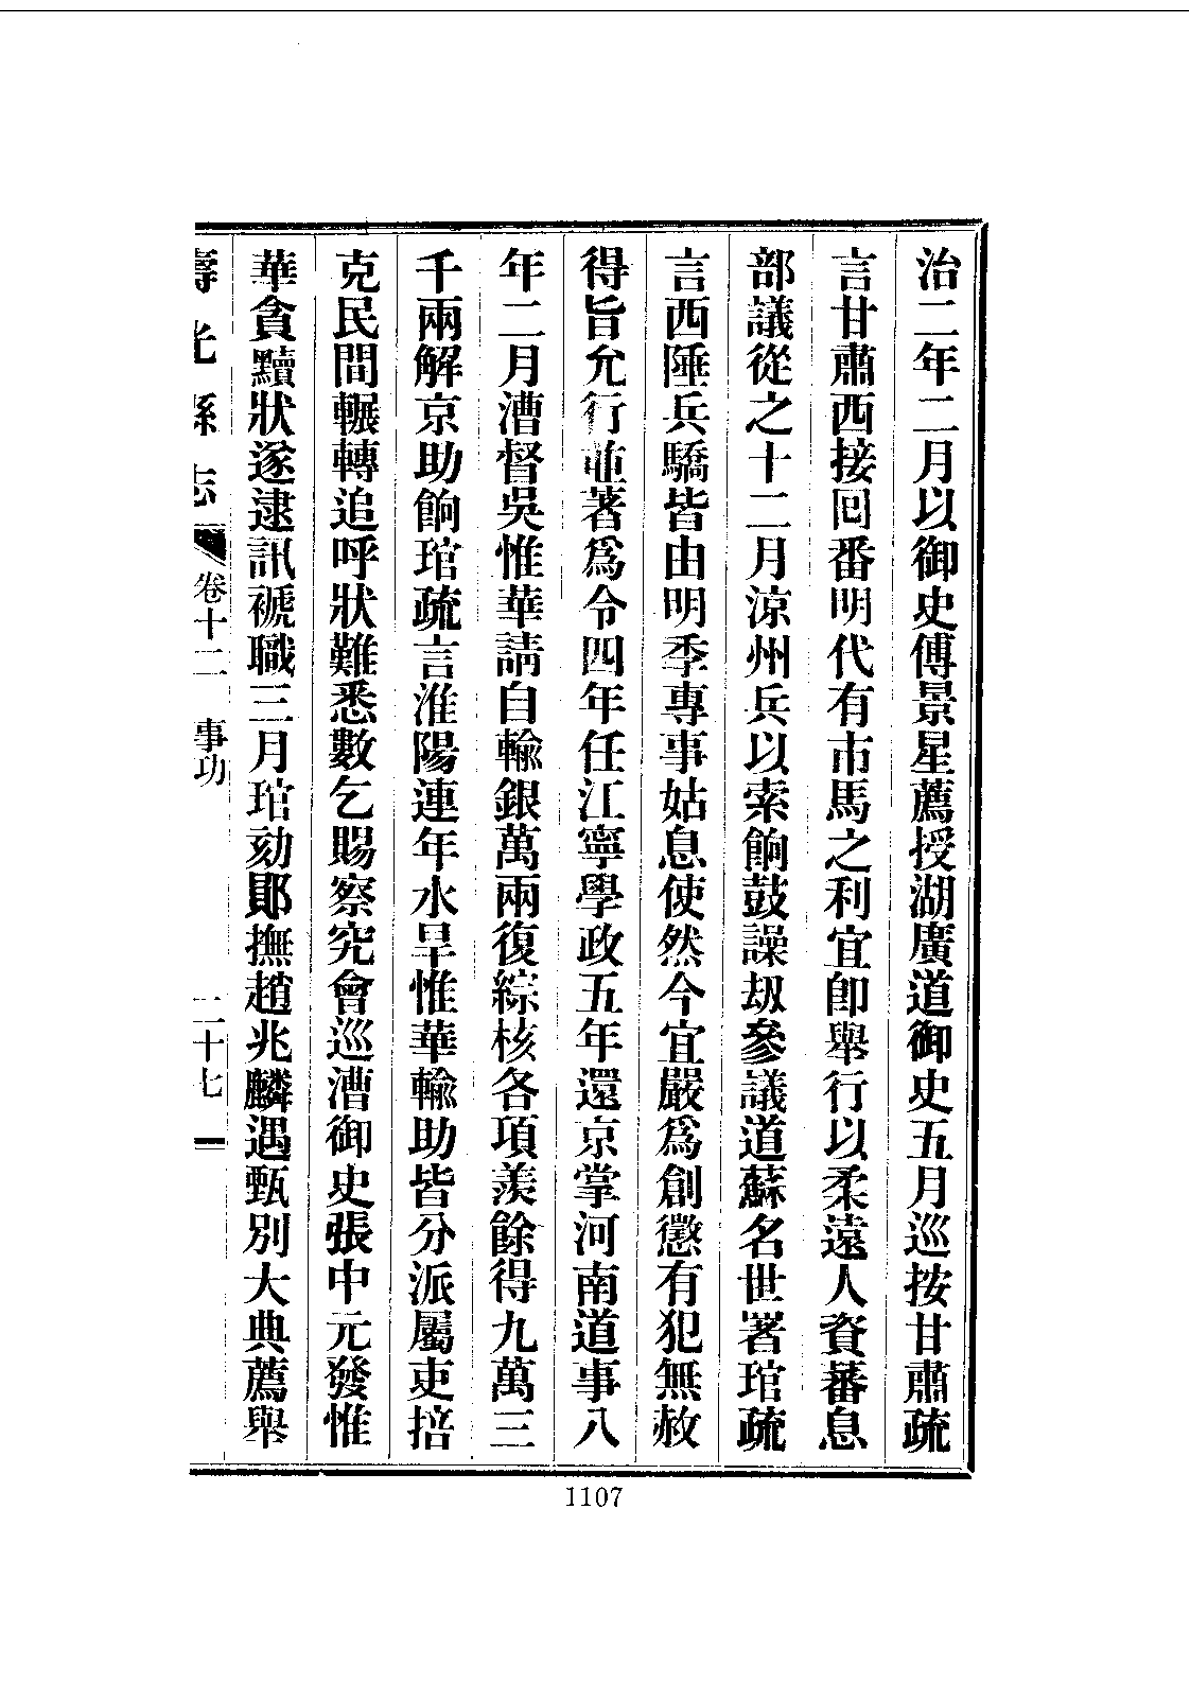 治二年二月以御史傅景星薦授湖廣道御史五月巡按甘肅疏
言甘肅西接回番明代有市馬之利宜卽舉行以柔遠人資蕃息
部議從之十二月涼州兵以索餉鼓譟刼參議道蘇名世署琯疏
言西陲兵驕皆由明季專事姑息使然今宜嚴爲創懲有犯無赦
得旨允行並著爲令四年任江寧學政五年還京掌河南道事八
年二月漕督吳惟華請自輸銀萬兩復綜核各項羨餘得九萬三
千兩解京助餉琯疏言淮陽連年水旱惟華輸助皆分派屬吏掊
克民間輾轉追呼狀難悉數乞賜察究會巡漕御史張中元發惟
華貪黷狀遂逮訊褫職三月琯劾鄖撫趙兆麟遇甄別大典薦舉
壽光縣志 卷十二 事功 二十七
1107